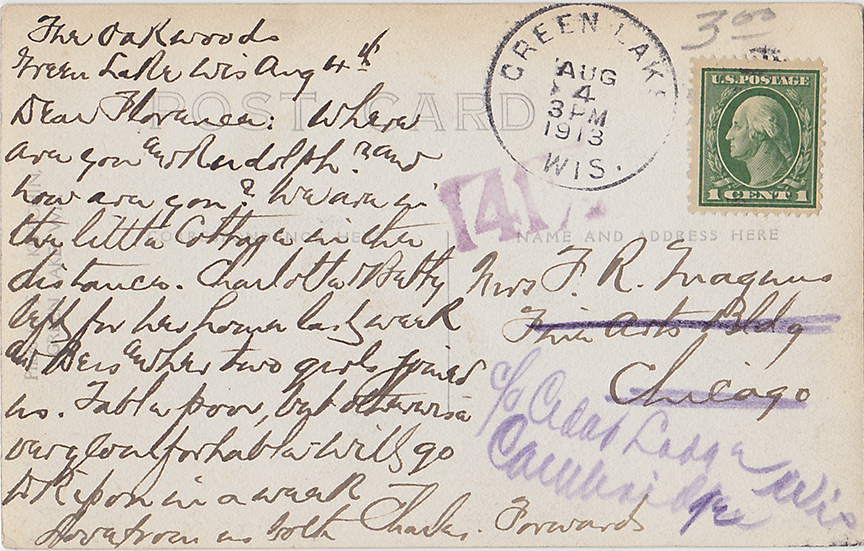 The Oakwoods
Green Lake Wis Aug 4th
POST CARD
Dear Florence: Where
are you and Rudolph? and
how are you? We are in
the little Cottage in the
distance. Charlotte & Betty
left for her home last week
and her two girls joined
us. Table poor, but otherwise
very comfortable. Will go
to Ripon in a week
Love from us both Charles.
GREEN LAKE
AUG
4
3 PM
1913
WIS.
3.00
U.S. POSTAGE
1 CENT 1
4
CORRESPONDENCE HERE
NAME AND ADDRESS HERE
Mrs F. R. Magnus
Fine Arts Bldg
Chicago
c/o Cedar Lodge
Cambridge Wis
Forward